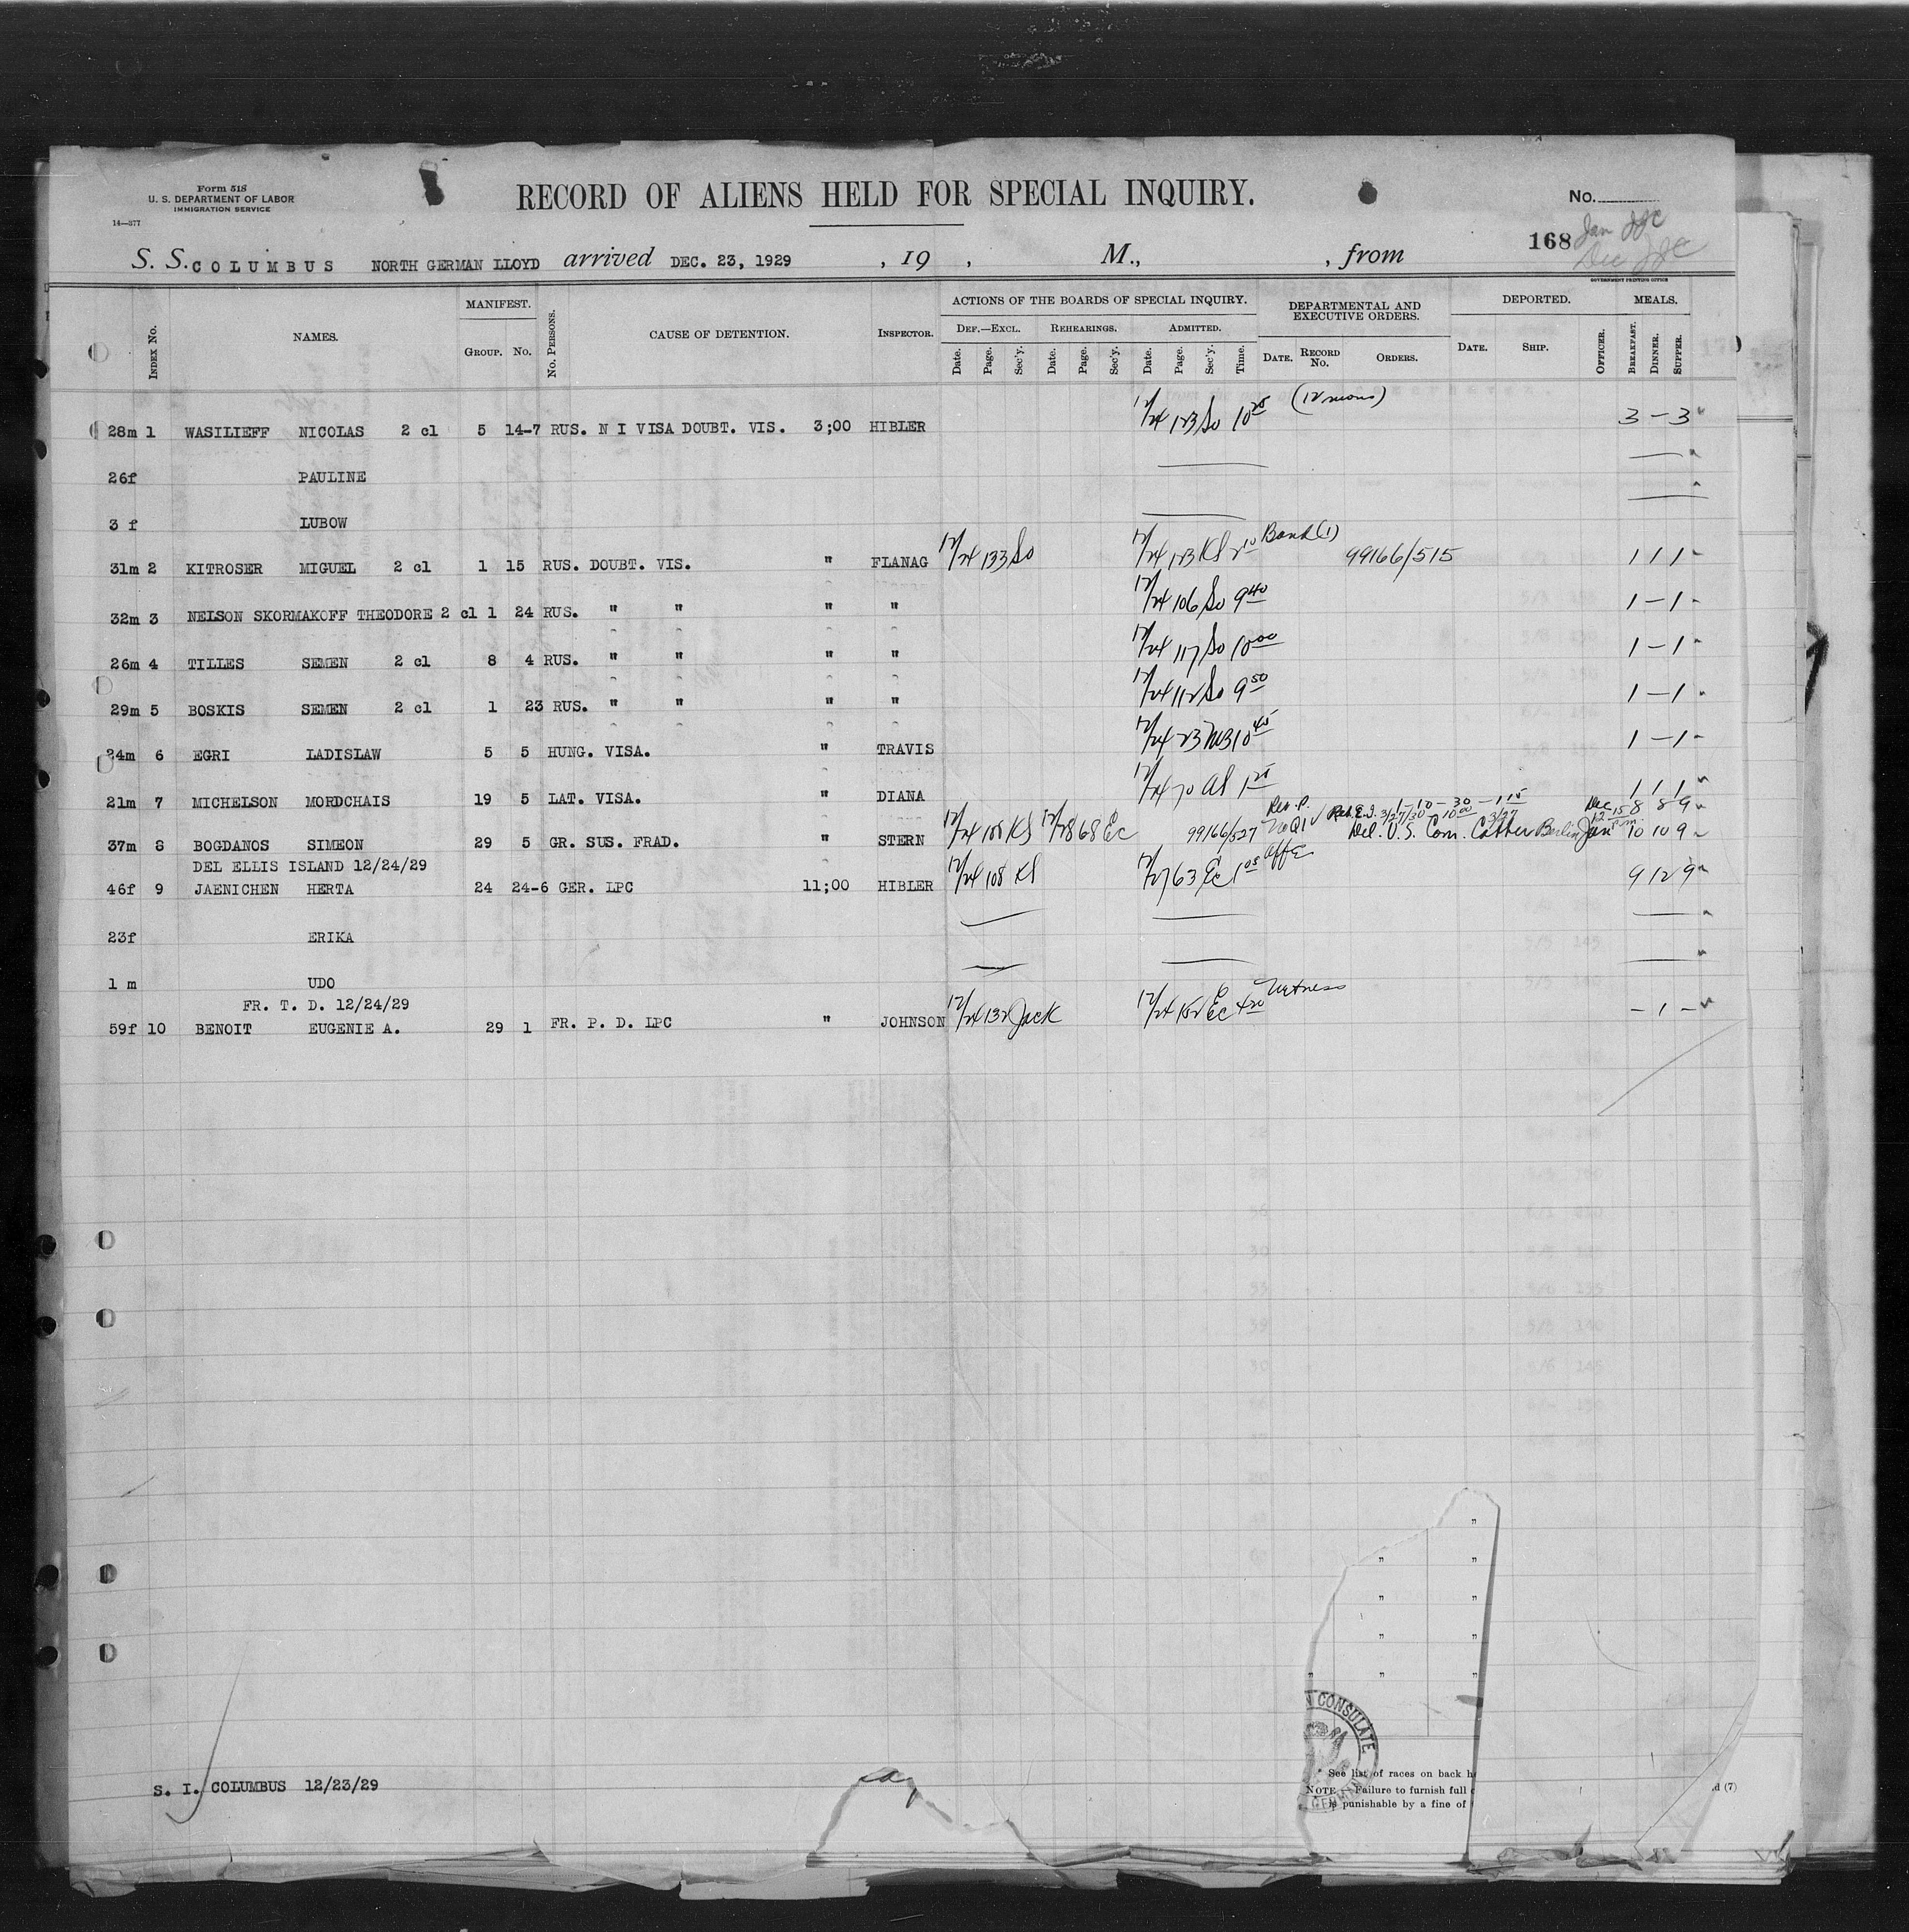 Form 518
U. S. DEPARTMENT OF LABOR
IMMIGRATION SERVICE
14—377
RECORD OF ALIENS HELD FOR SPECIAL INQUIRY.
No.
168
Jan
Dec
S. S. COLUMBUS NORTH GERMAN LLOYD arrived DEC. 23, 1929 , 19 , M., , from
GOVERNMENT PRINTING OFFICE
INDEX No. NAMES. MANIFEST. GROUP. No. No. PERSONS. CAUSE OF DETENTION. INSPECTOR.
ACTIONS OF THE BOARDS OF SPECIAL INQUIRY. DEF.—EXCL. REHEARINGS. ADMITTED.
Date. Page. Sec'y. Date. Page. Sec'y. Date. Page. Sec'y. Time.
DEPARTMENTAL AND EXECUTIVE ORDERS. DATE. RECORD No. ORDERS.
DEPORTED. DATE. SHIP. OFFICER. MEALS. BREAKFAST. DINNER. SUPPER.
28m 1 WASILIEFF NICOLAS 2 cl 5 14-7 RUS. N I VISA DOUBT. VIS. 3;00 HIBLER 12/24 123 So 10 25 3 – 3
26f PAULINE
3 f LUBOW
31m 2 KITROSER MIGUEL 2 cl 1 15 RUS. DOUBT. VIS. " FLANAG 12/24 133 So 12/24 123 KS 2 10 Bond (1) 99166/515 1 1 1
32m 3 NELSON SKORMAKOFF THEODORE 2 cl 1 24 RUS. " " " " 12/24 106 So 9 40 1 – 1
26m 4 TILLES SEMEN 2 cl 8 4 RUS. " " " " 12/24 117 So 10 00 1 – 1
29m 5 BOSKIS SEMEN 2 cl 1 23 RUS. " " " " 12/24 112 So 9 50 1 – 1
24m 6 EGRI LADISLAW 5 5 HUNG. VISA. " TRAVIS 12/24 23 10 45 1 – 1
21m 7 MICHELSON MORDCHAIS 19 5 LAT. VISA. " DIANA 12/24 70 1 25 1 1 1
37m 8 BOGDANOS SIMEON 29 5 GR. SUS. FRAD. " STERN 12/24 108 KS 12/28 68 Ec 99166/527 Del. U.S. Com. Berlin Dec 8 8 9 Jan 10 10 9
DEL ELLIS ISLAND 12/24/29
46f 9 JAENICHEN HERTA 24 24-6 GER. LPC 11;00 HIBLER 12/24 108 KS 12/27 63 Ec 1 05 9 12 9
23f ERIKA
1 m UDO
FR. T. D. 12/24/29
59f 10 BENOIT EUGENIE A. 29 1 FR. P. D. LPC " JOHNSON 12/24 132 Jack 12/24 152 Ec 4 20 Witness – 1 –
N CONSULATE
See list of races on back h
NOTE.—Failure to furnish full
is punishable by a fine of
d (7)
S. I. COLUMBUS 12/23/29